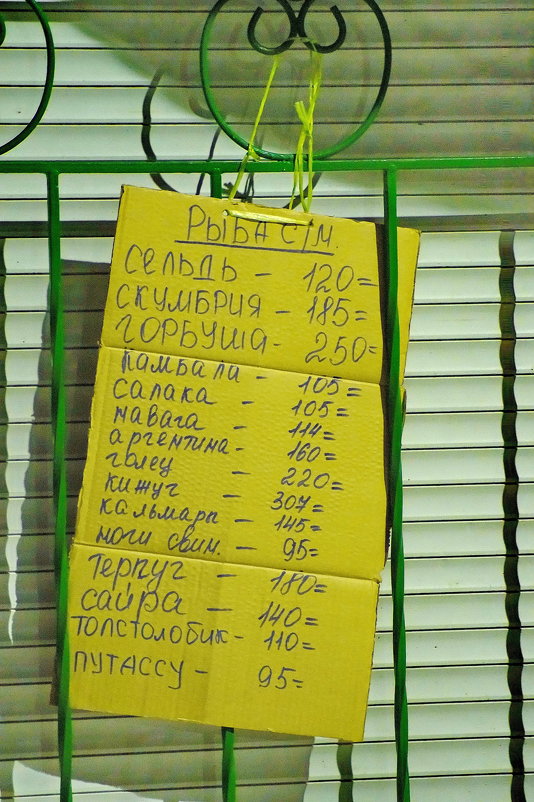 РЫБА С/М.
СЕЛЬДЬ - 120=
СКУМБРИЯ - 185=
ГОРБУША - 250=
камбала - 105=
салака - 105=
навага - 114=
аргентина - 160=
голец - 220=
кижуч - 307=
кальмары - 145=
ноги свин. - 95=
терпуг - 180=
сайра - 140=
толстолобик - 110=
ПУТАССУ - 95=